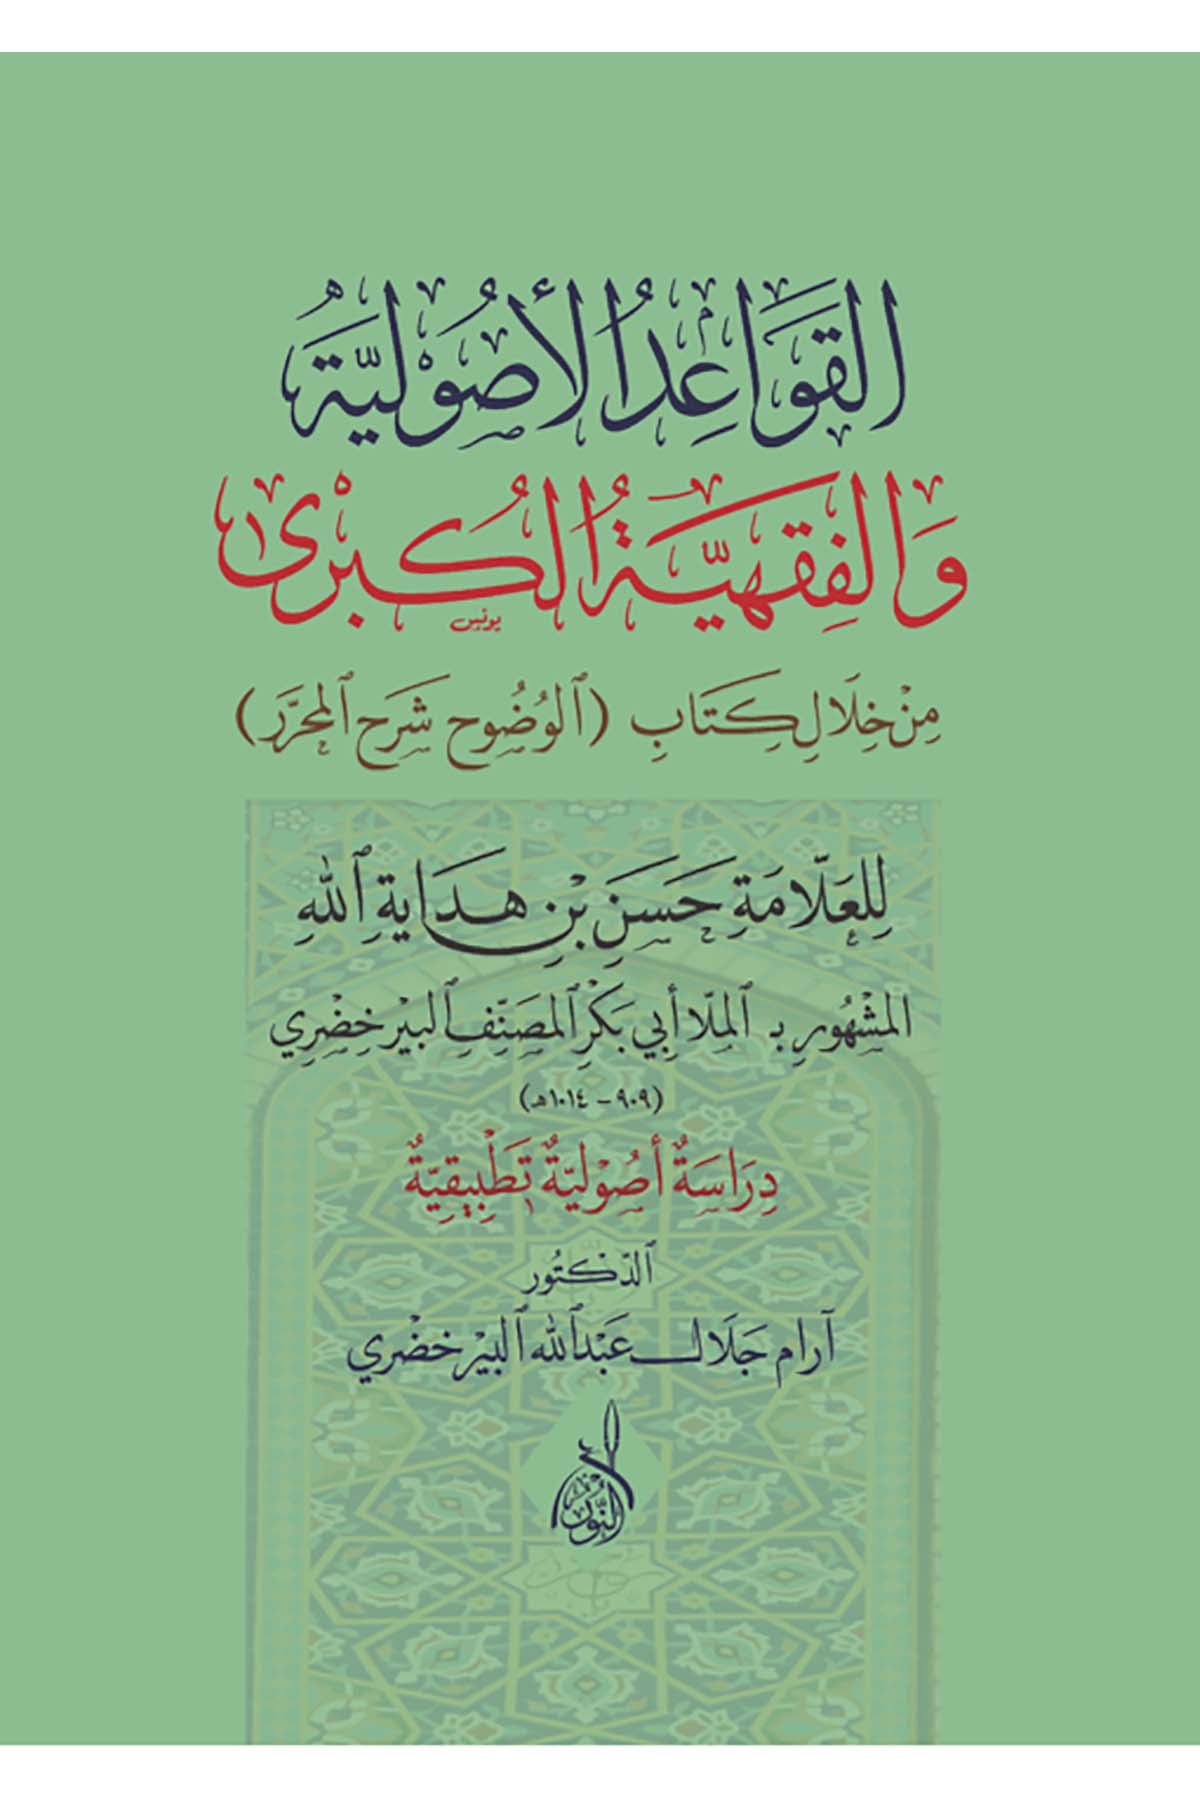 القَوَاعِدُ الأُصُوْلِيَّةُ
وَالفِقهِيَّةُ الكُبْرَى
يونس
مِنْ خِلَالِ كِتَابِ (الوُضُوح شَرَح المحرَّر)
لِلعَلّامَةِ حَسَنَ بْنِ هِدَايَةِ اللهِ
المشْهُورِ بـ المِلّا أَبِي بَكْرِ المصَنِّفِ البيْرخِضْرِي
(٩٠٩ – ١٠١٤هـ)
دِرَاسَةٌ أُصُوْلِيَّةٌ تَطْبِيقِيَّةٌ
الدّكتُور
آرام جَلَال عَبْدالله البيْرخضْرِي
النُّور